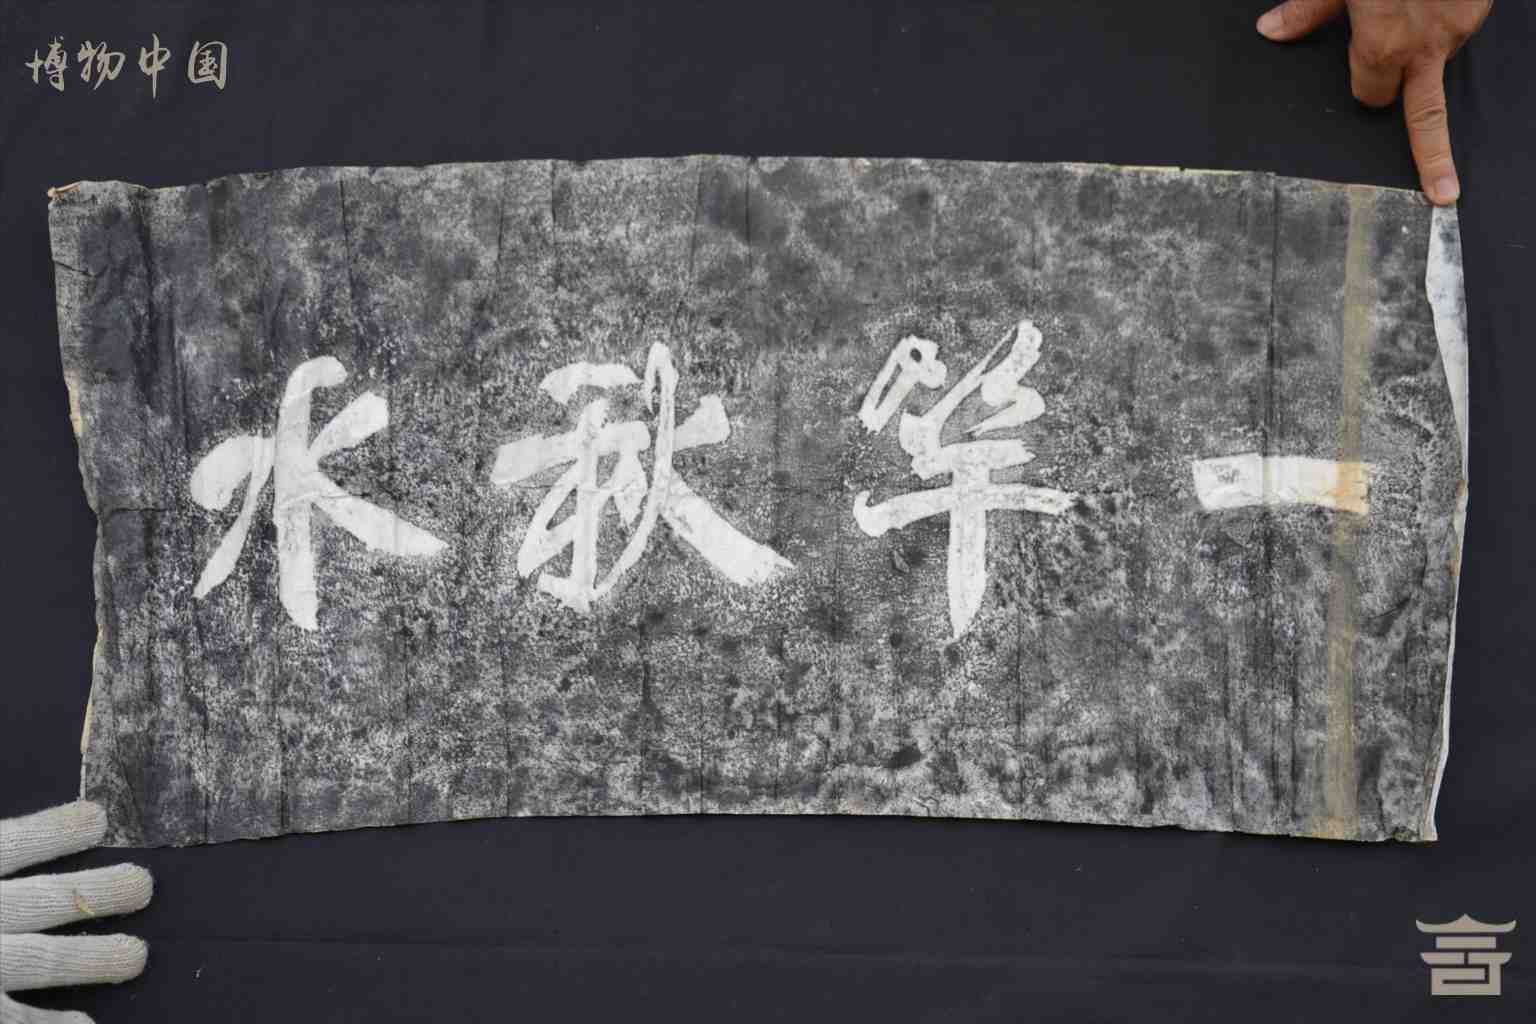 博物中国
一竿秋水